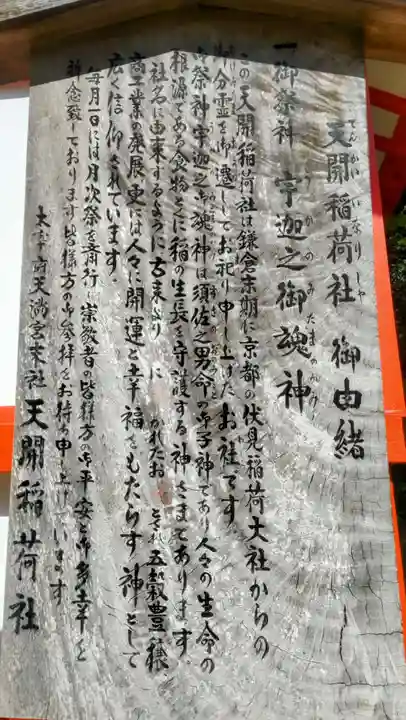 天開稲荷社 御由緒
てんかいいなりしゃ
一御祭神 宇迦之御魂神
うかのみたまのかみ
この天開稲荷社は鎌倉末期に京都の伏見稲荷大社からの
御分霊を御遷してお祀り申し上げたお社です。
御祭神宇迦之御魂神は須佐之男命の御子神であり人々の生命の
根源である食物とくに稲の生長を守護する神さまであります。
社名に由来するように古来より に かれたお とされ五穀豊穣、
商工業の発展更には人々に開運と幸福をもたらす神として
広く信仰されています。
毎月一日には月次祭を斎行し崇敬者の皆様方の御平安と御多幸を
祈念致しております皆様方の御参拝をお待ち申し上げています
太宰府天満宮末社 天開稲荷社